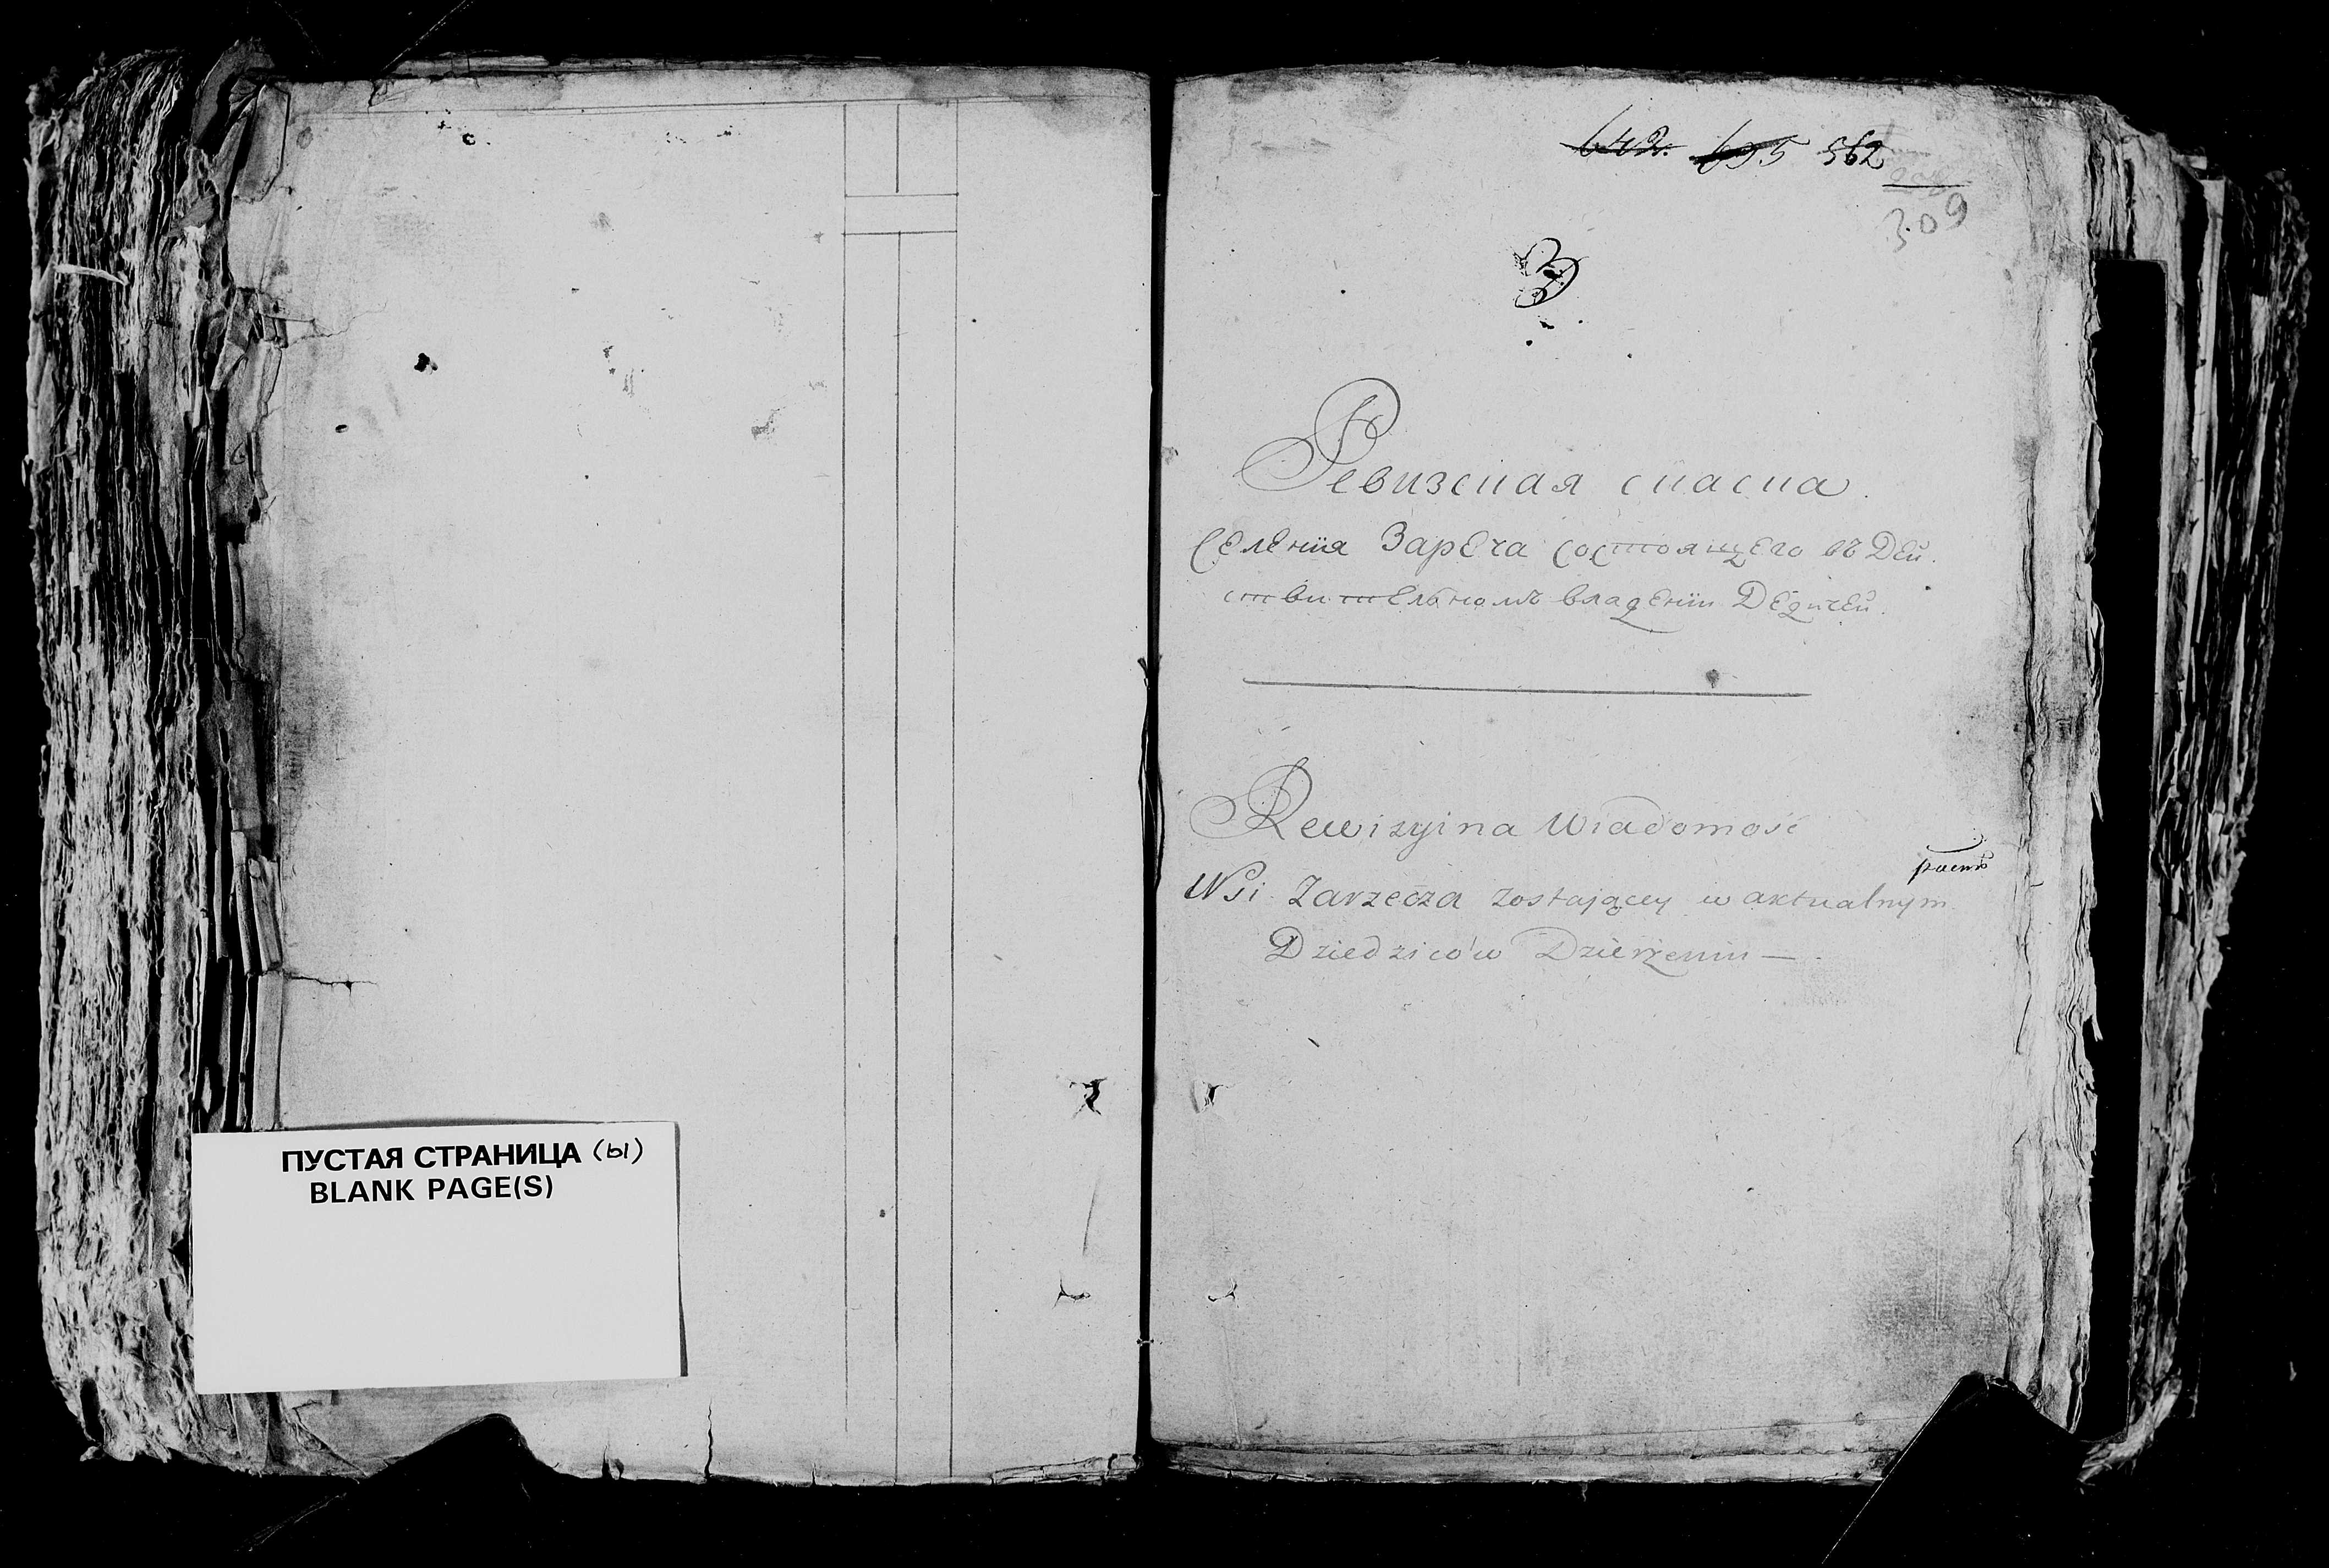 ПУСТАЯ СТРАНИЦА (Ы)
BLANK PAGE(S)
642. 695 562
309
Ревизская спаска.
Селения Зареча состоящего въ Дей-
ствительномъ владении Дедичей.
Rewizyina Wiadomość
Wsi Zarzecza zostającey w aktualnym
Dziedziców Dzierżeniu —